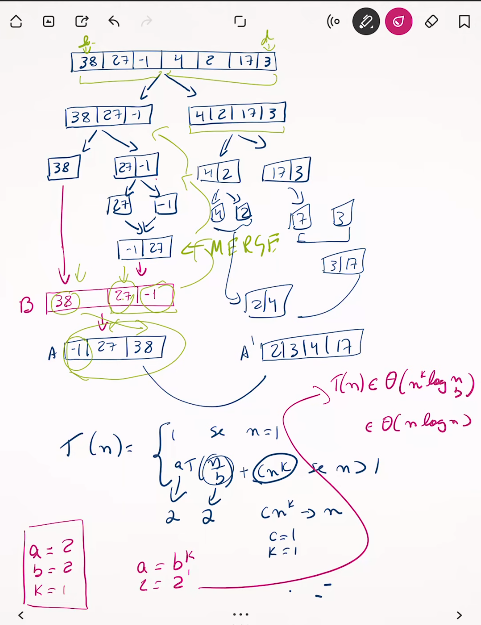 38 | 27 | -1 | 4 | 2 | 17 | 3
38 | 27 | -1
4 | 2 | 17 | 3
38
27 | -1
4 | 2
17 | 3
27
-1
4
2
3
-1 | 27
MERGE
3 | 17
B 38 27 -1
2 | 4
A -1 | 27 | 38
A' 2 | 3 | 4 | 17
T(n) ∈ Θ(n^k log_b n)
∈ Θ(n log n)
T(n) = { 1 se n=1
aT(n/b) + cn^k se n>1
2 2
cn^k → n
c=1
k=1
a = 2
b = 2
k = 1
a = b^k
2 = 2^1